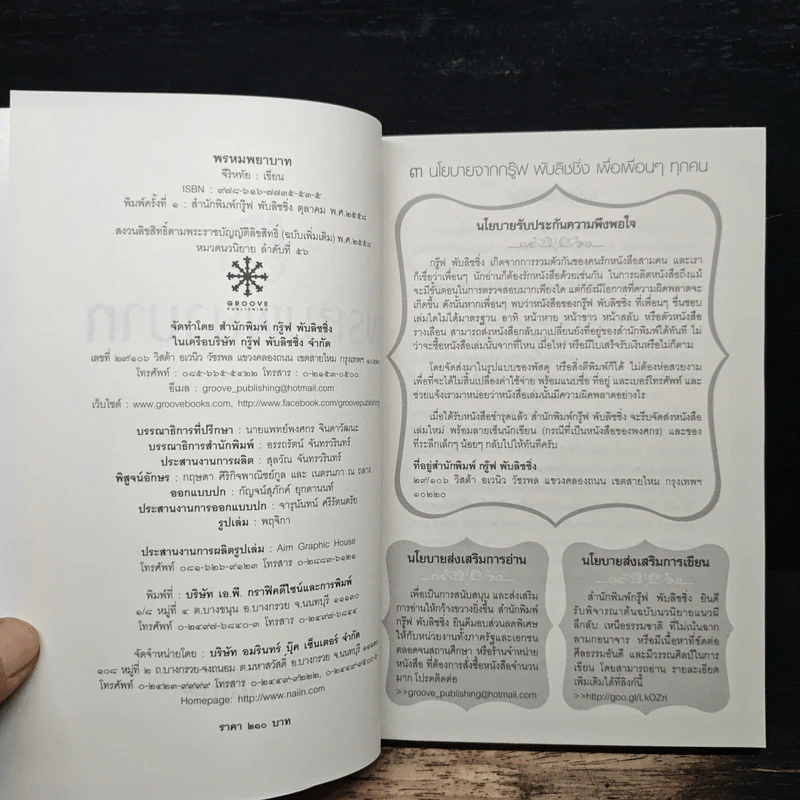 พรหมพยาบาท
จิรัทย์ : เขียน
ISBN : ๙๗๘-๖๑๖-๗๗๓๕-๕๓-๕
พิมพ์ครั้งที่ ๑ : สำนักพิมพ์กรู๊ฟ พับลิชชิ่ง ตุลาคม พ.ศ.๒๕๕๘
สงวนลิขสิทธิ์ตามพระราชบัญญัติลิขสิทธิ์ (ฉบับเพิ่มเติม) พ.ศ.๒๕๕๘
หมวดนวนิยาย ลำดับที่ ๕๖
GROOVE
PUBLISHING
จัดทำโดย สำนักพิมพ์ กรู๊ฟ พับลิชชิ่ง
ในเครือบริษัท กรู๊ฟ พับลิชชิ่ง จำกัด
เลขที่ ๒๙/๑๐๖ วิสต้า อเวนิว วัชรพล แขวงคลองถนน เขตสายไหม กรุงเทพฯ
โทรศัพท์ : ๐๘๕-๖๖๕-๕๔๒๒ โทรสาร : ๐-๒๑๕๓-๐๕๐๐
อีเมล : groove_publishing@hotmail.com
เว็บไซต์ : www.groovebooks.com, http://www.facebook.com/groovepublishing
บรรณาธิการที่ปรึกษา : นายแพทย์พงศกร จินดาวัฒนะ
บรรณาธิการสำนักพิมพ์ : อรรถรัตน์ จันทรวรินทร์
ประสานงานการผลิต : สุลวัณ จันทรวรินทร์
พิสูจน์อักษร : กฤษดา ศิริกิจพาณิชย์กูล และ เนตรนภา ณ ถลาง
ออกแบบปก : กัญจน์สุภักค์ ยุกตานนท์
ประสานงานการออกแบบปก : จารุนันทน์ ศรีรัตนตรัย
รูปเล่ม : พฤจิกา
ประสานงานการผลิตรูปเล่ม : Aim Graphic House
โทรศัพท์ ๐๘๑-๖๒๖-๙๑๒๓ โทรสาร : ๐-๒๘๘๓-๖๑๒๑
พิมพ์ที่ : บริษัท เอ.พี. กราฟิคดีไซน์และการพิมพ์
๑/๘ หมู่ที่ ๔ ต.บางขนุน อ.บางกรวย จ.นนทบุรี ๑๑๑๓๐
โทรศัพท์ ๐-๒๔๙๗-๖๘๔๐-๓ โทรสาร ๐-๒๔๙๗-๖๘๔๔
จัดจำหน่ายโดย : บริษัท อมรินทร์ บุ๊ค เซ็นเตอร์ จำกัด
๑๐๘ หมู่ที่ ๒ ถ.บางกรวย-จงถนอม ต.มหาสวัสดิ์ อ.บางกรวย จ.นนทบุรี
โทรศัพท์ ๐-๒๔๒๓-๙๙๙๙ โทรสาร ๐-๒๔๔๙-๙๒๒๒,
Homepage: http://www.naiin.com
ราคา ๒๑๐ บาท
๓ นโยบายจากกรู๊ฟ พับลิชชิ่ง เพื่อเพื่อนๆ ทุกคน
นโยบายรับประกันความพึงพอใจ
กรู๊ฟ พับลิชชิ่ง เกิดจากการรวมตัวกันของคนรักหนังสือสามคน และเรา
ก็เชื่อว่าเพื่อนๆ นักอ่านก็ต้องรักหนังสือด้วยเช่นกัน ในการผลิตหนังสือถึงแม้
จะมีขั้นตอนในการตรวจสอบมากเพียงใด แต่ก็ยังมีโอกาสที่ความผิดพลาดจะ
เกิดขึ้น ดังนั้นหากเพื่อนๆ พบว่าหนังสือของกรู๊ฟ พับลิชชิ่ง ที่เพื่อนๆ ชื่นชอบ
เล่มใดไม่ได้มาตรฐาน อาทิ หน้าหาย หน้าขาว หน้าสลับ หรือตัวหนังสือ
รางเลือน สามารถส่งหนังสือกลับมาเปลี่ยนยังที่อยู่ของสำนักพิมพ์ได้ทันที ไม่
ว่าจะซื้อหนังสือเล่มนั้นจากที่ไหน เมื่อไหร่ หรือมีใบเสร็จรับเงินหรือไม่ก็ตาม
โดยจัดส่งมาในรูปแบบของพัสดุ หรือสิ่งตีพิมพ์ก็ได้ ไม่ต้องห่อสวยงาม
เพื่อที่จะได้ไม่สิ้นเปลืองค่าใช้จ่าย พร้อมแนบชื่อ ที่อยู่ และเบอร์โทรศัพท์ และ
ช่วยแจ้งเรามาหน่อยว่าหนังสือเล่มนั้นมีความผิดพลาดอย่างไร
เมื่อได้รับหนังสือชำรุดแล้ว สำนักพิมพ์ กรู๊ฟ พับลิชชิ่ง จะรีบจัดส่งหนังสือ
เล่มใหม่ พร้อมลายเซ็นนักเขียน (กรณีที่เป็นหนังสือของพงศกร) และของ
ที่ระลึกเล็กๆ น้อยๆ กลับไปให้ทันทีครับ
ที่อยู่สำนักพิมพ์ กรู๊ฟ พับลิชชิ่ง
๒๙/๑๐๖ วิสต้า อเวนิว วัชรพล แขวงคลองถนน เขตสายไหม กรุงเทพฯ
๑๐๒๒๐
นโยบายส่งเสริมการอ่าน
เพื่อเป็นการสนับสนุน และส่งเสริม
การอ่านให้กว้างขวางยิ่งขึ้น สำนักพิมพ์
กรู๊ฟ พับลิชชิ่ง ยินดีมอบส่วนลดพิเศษ
ให้กับหน่วยงานทั้งภาครัฐและเอกชน
ตลอดจนสถานศึกษา หรือร้านจำหน่าย
หนังสือ ที่ต้องการสั่งซื้อหนังสือจำนวน
มาก โปรดติดต่อ
>>groove_publishing@hotmail.com
นโยบายส่งเสริมการเขียน
สำนักพิมพ์กรู๊ฟ พับลิชชิ่ง ยินดี
รับพิจารณาต้นฉบับนวนิยายแนวผี
ลึกลับ เหนือธรรมชาติ ที่ไม่เน้นฉาก
ลามกอนาจาร หรือมีเนื้อหาที่ขัดต่อ
ศีลธรรมอันดี และมีวรรณศิลป์ในการ
เขียน โดยสามารถอ่าน รายละเอียด
เพิ่มเติมได้ที่ลิงก์นี้
>>http://goo.gl/LkOZri